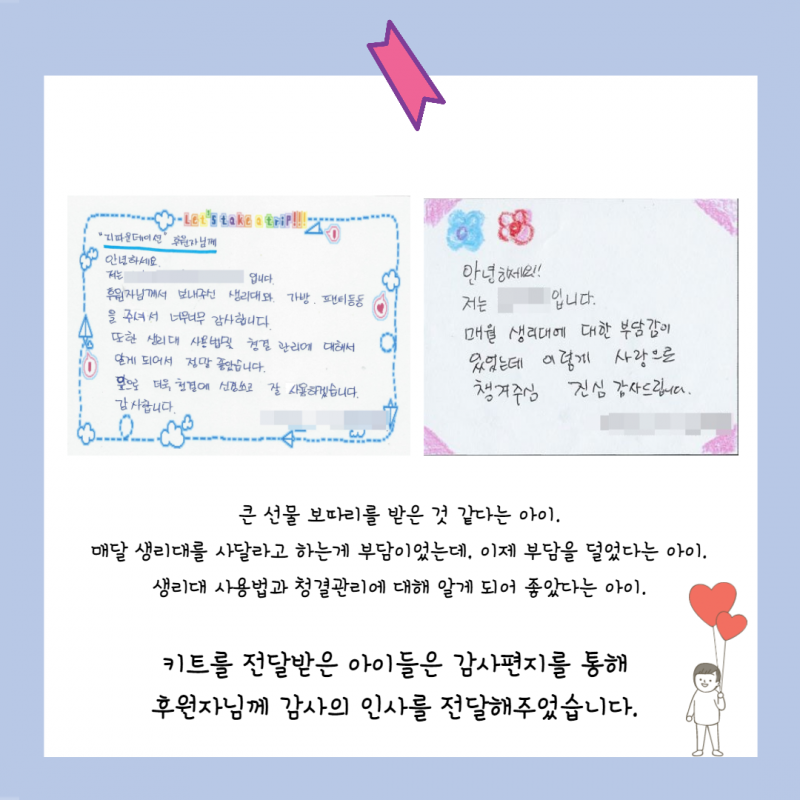 Let's take a trip!!!
"리파운데이션" 후원자님께
안녕하세요.
저는 입니다.
후원자님께서 보내주신 생리대와 가방, 팬티등등
을 주셔서 너무너무 감사합니다.
또한 생리대 사용법및 청결 관리에 대해서
알게 되어서 정말 좋았습니다.
앞으로 더욱 청결에 신경쓰고 잘 사용하겠습니다.
감사합니다.
안녕하세요!!
저는 입니다.
매월 생리대에 대한 부담감이
있었는데 이렇게 사랑으로
챙겨주심 진심 감사드립니다.
큰 선물 보따리를 받은 것 같다는 아이.
매달 생리대를 사달라고 하는게 부담이었는데. 이제 부담을 덜었다는 아이.
생리대 사용법과 청결관리에 대해 알게 되어 좋았다는 아이.
키트를 전달받은 아이들은 감사편지를 통해
후원자님께 감사의 인사를 전달해주었습니다.